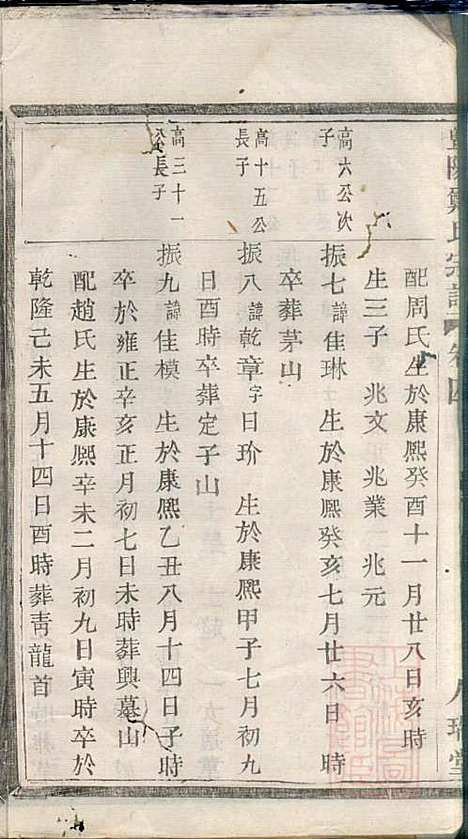 鄭氏宗譜 卷四
配周氏生於康熙癸酉十一月廿八日亥時
生三子 兆文 兆業 兆元
高六公次子
振七諱佳琳 生於康熙癸亥七月廿六日 時
卒葬茅山
高十五公長子
振八諱乾章字日玠 生於康熙甲子七月初九
日酉時卒葬定子山
高三十一公長子
振九諱佳模 生於康熙乙丑八月十四日子時
卒於雍正辛亥正月初七日未時葬興墓山
配趙氏生於康熙辛未二月初九日寅時卒於
乾隆己未五月十四日酉時葬青龍首